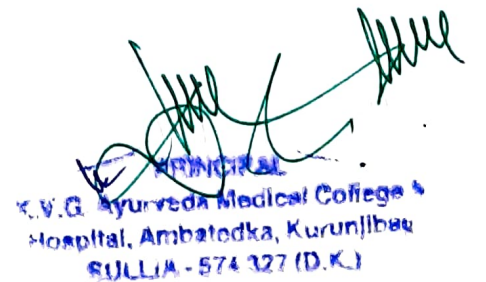 PRINCIPAL
K.V.G. Ayurveda Medical College &
Hospital, Ambatedka, Kurunjibag
SULLIA - 574 327 (D.K.)